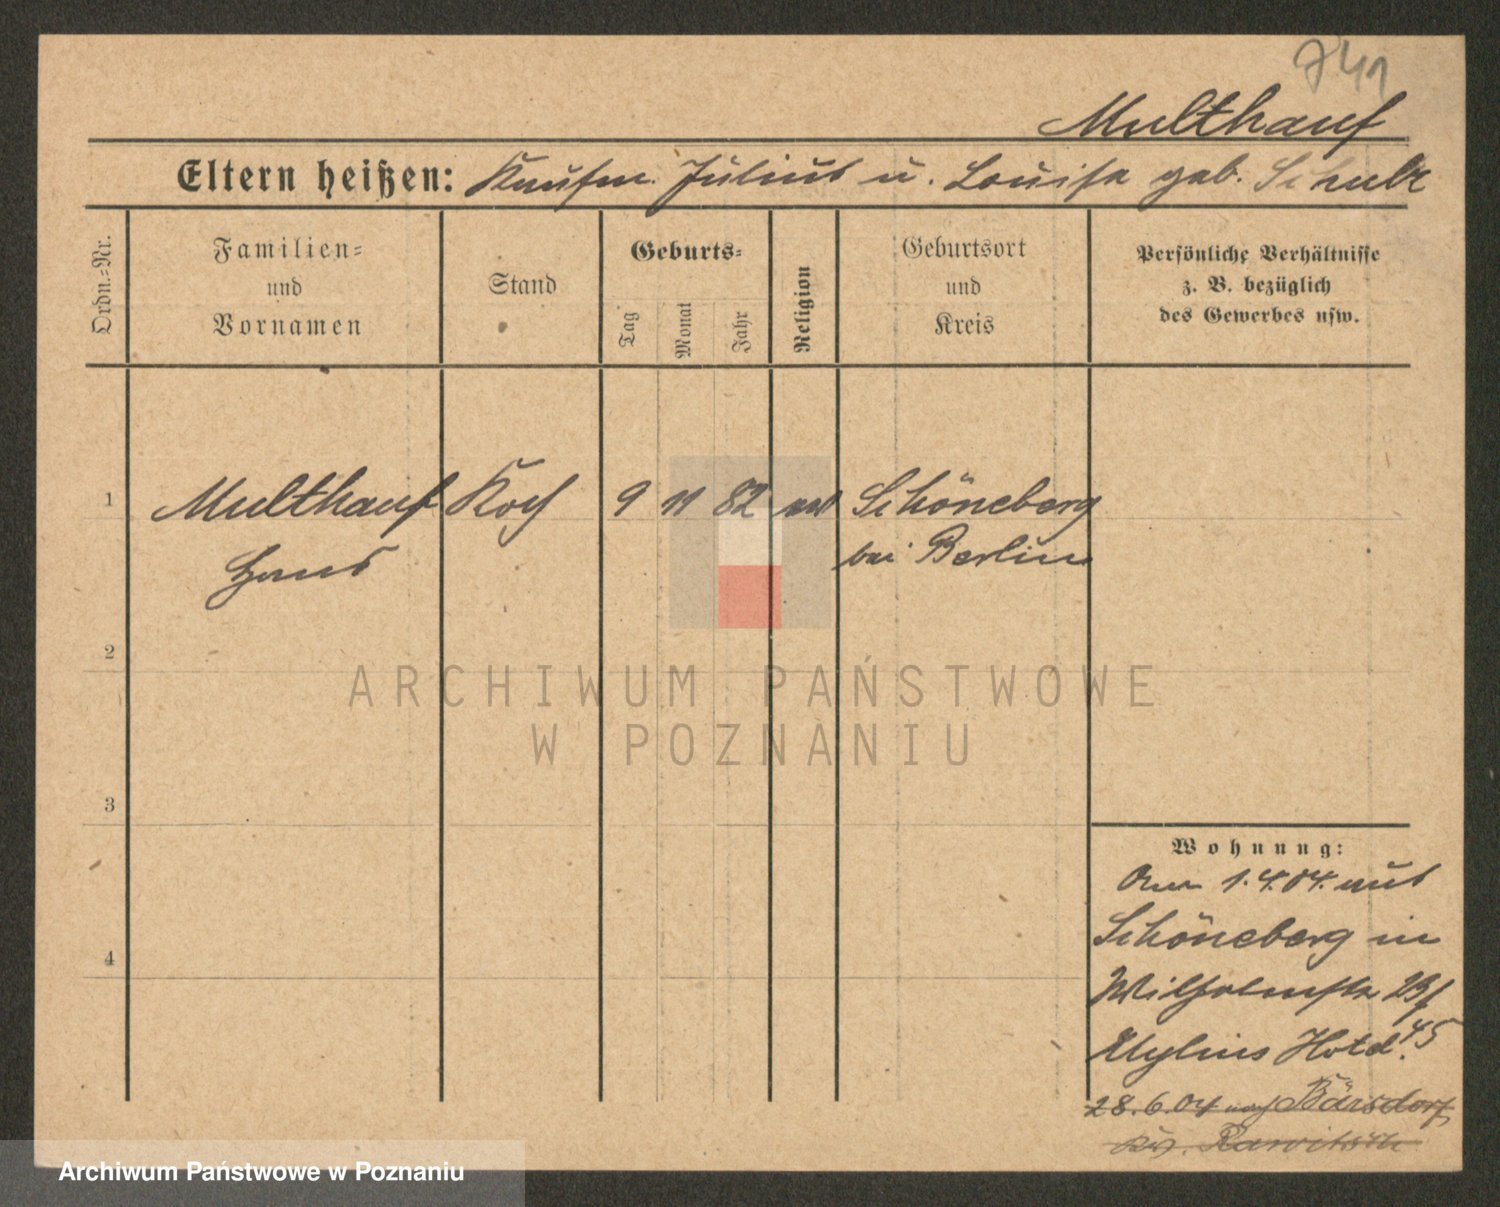 741
Multhauf
Eltern heißen: Kaufm. Julius u. Louise geb. Schulz
Ordn.-Nr.
Familien-
und
Vornamen
Stand
Geburts-
Tag
Monat
Jahr
Religion
Geburtsort
und
Kreis
Persönliche Verhältnisse
z. B. bezüglich
des Gewerbes usw.
1
Multhauf Koch 9 11 82 Schöneberg
Hans bei Berlin
2
ARCHIWUM PAŃSTWOWE
W POZNANIU
3
4
Wohnung:
Am 1.4.04. aus
Schöneberg in
Wilhelmstr 23
Mylius Hotel. 45
28.6.04 nach Bärsdorf
Rawitsch
Archiwum Państwowe w Poznaniu